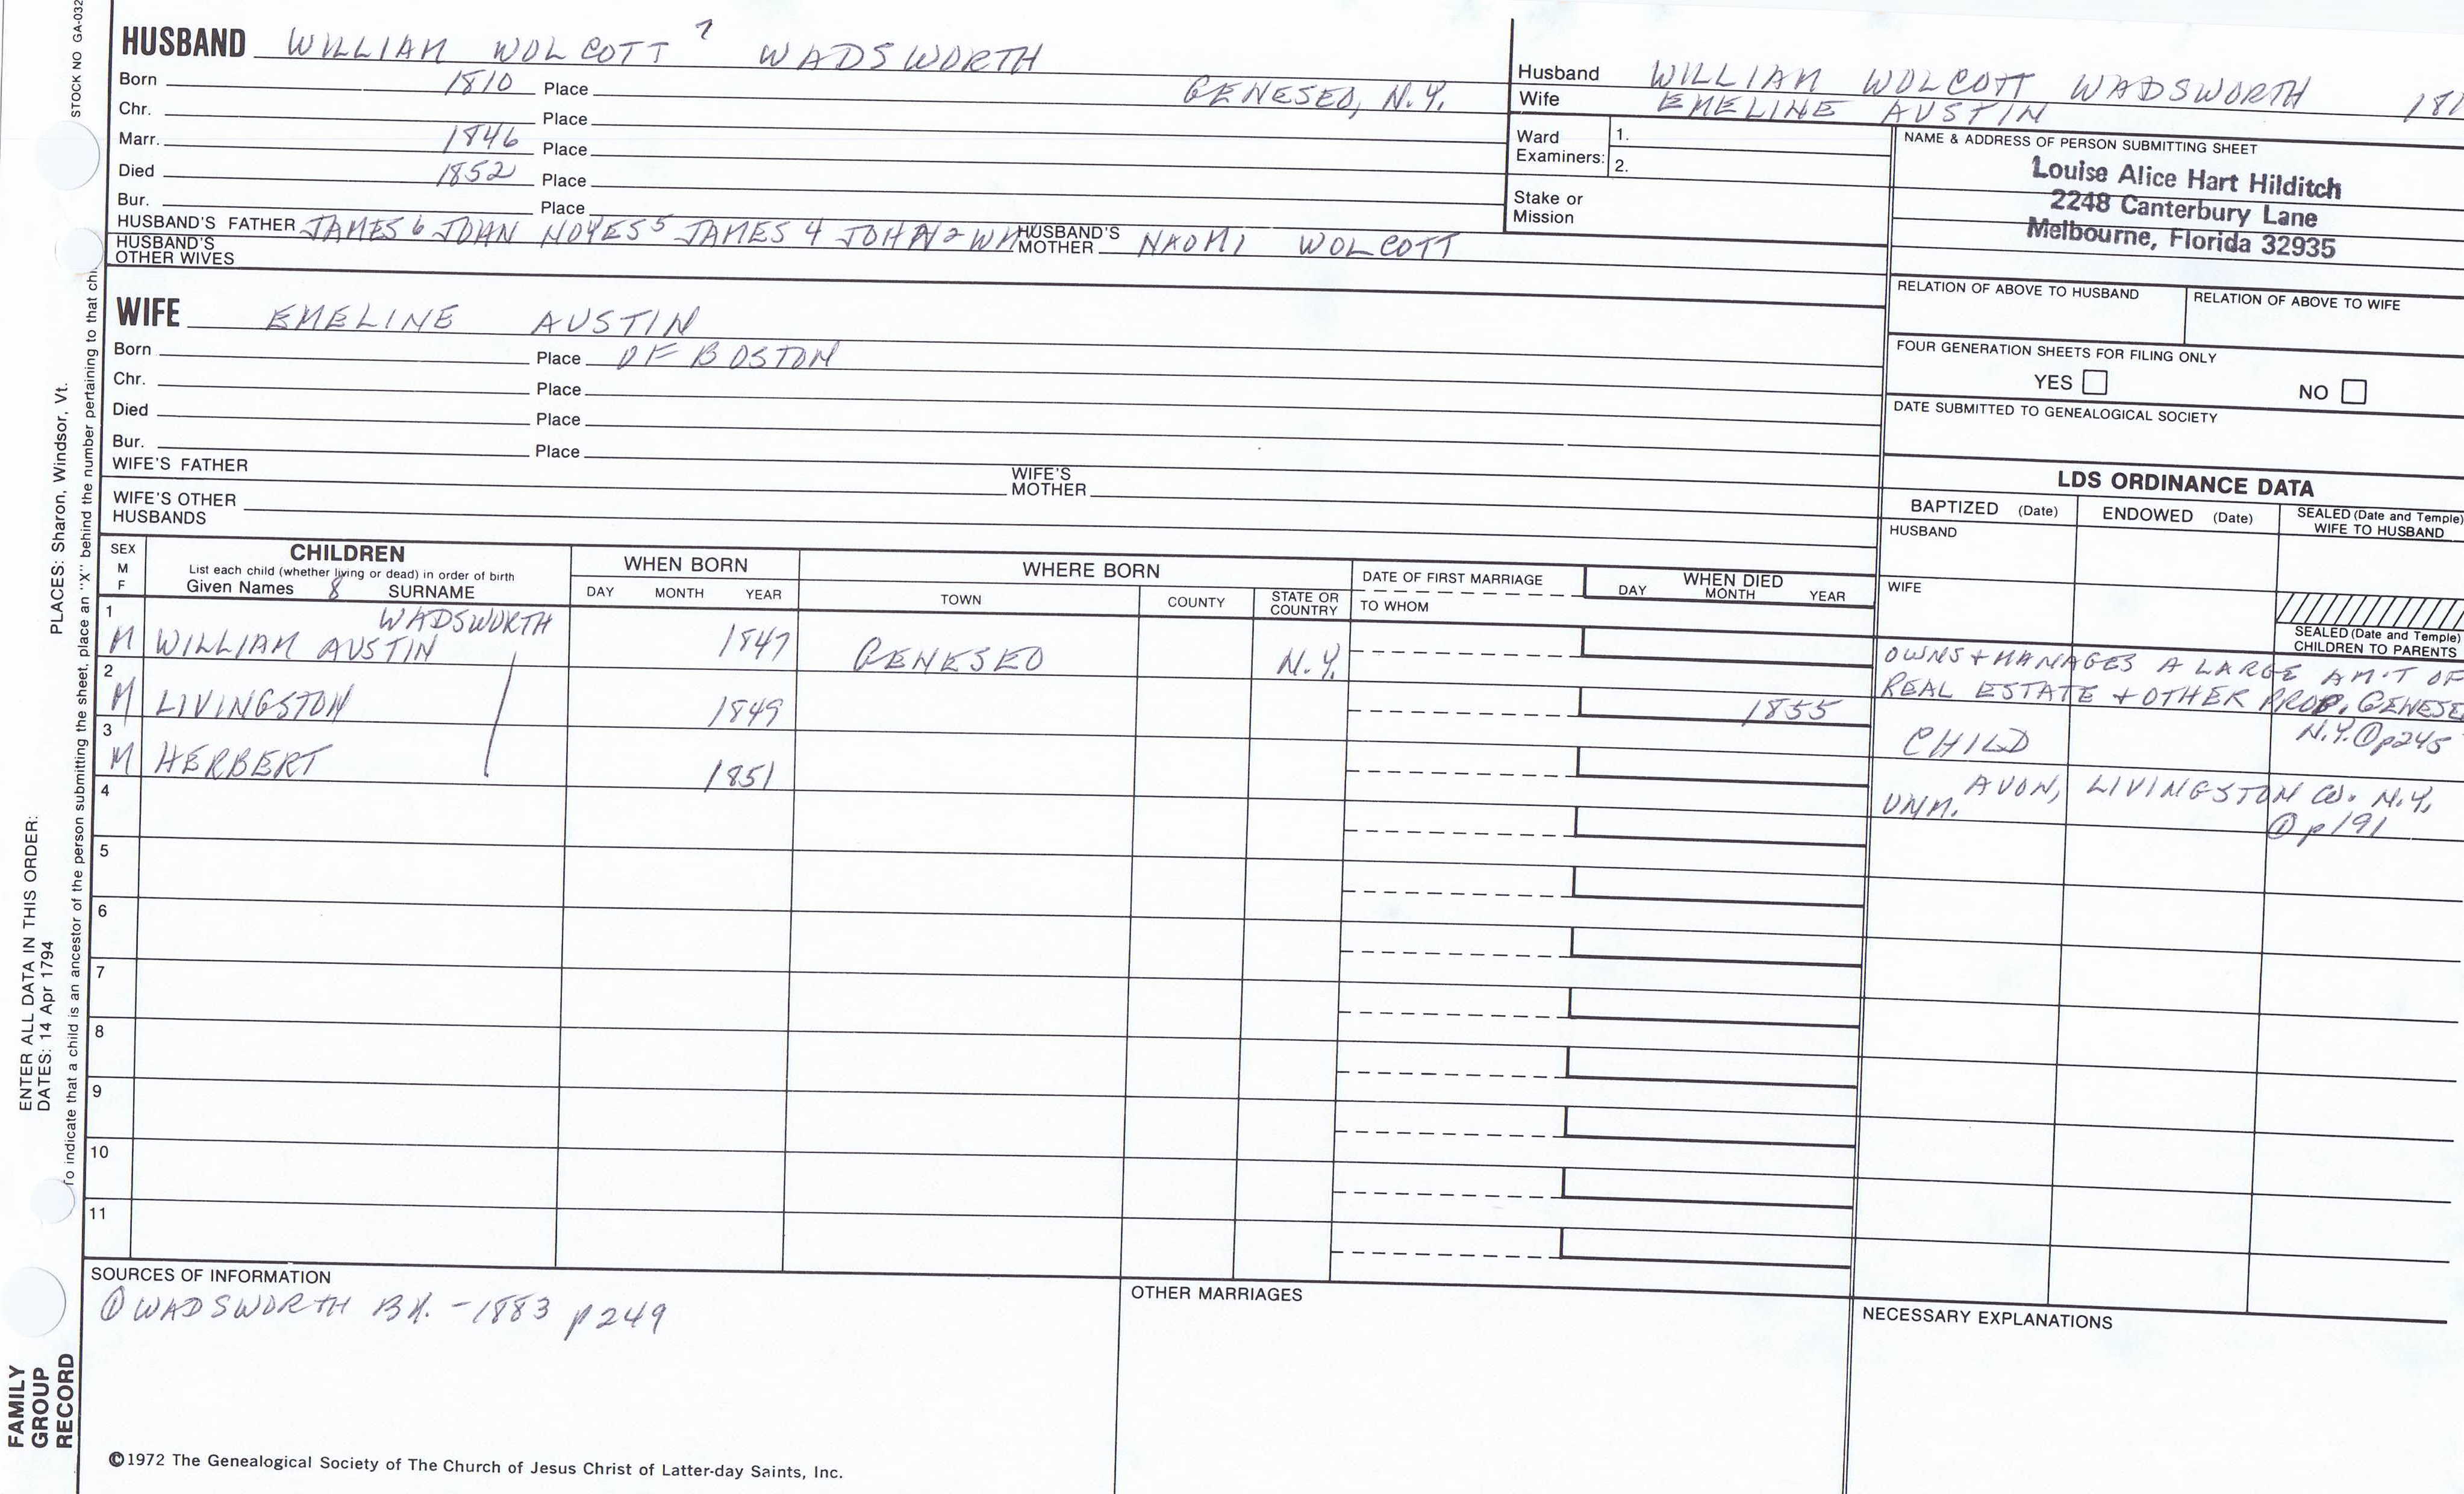 STOCK NO GA-032
HUSBAND WILLIAM WOLCOTT 7 WADSWORTH
Born 1810 Place GENESEO, N.Y.
Chr. Place
Marr. 1846 Place
Died 1852 Place
Bur. Place
HUSBAND'S FATHER JAMES 6 JOHN NOYES 5 JAMES 4 JOHN 2 WM HUSBAND'S MOTHER NAOMI WOLCOTT
HUSBAND'S OTHER WIVES
Husband WILLIAM WOLCOTT WADSWORTH 181
Wife EMELINE AUSTIN
Ward Examiners: 1.
2.
Stake or Mission
NAME & ADDRESS OF PERSON SUBMITTING SHEET
Louise Alice Hart Hilditch
2248 Canterbury Lane
Melbourne, Florida 32935
RELATION OF ABOVE TO HUSBAND RELATION OF ABOVE TO WIFE
FOUR GENERATION SHEETS FOR FILING ONLY
YES NO
DATE SUBMITTED TO GENEALOGICAL SOCIETY
WIFE EMELINE AUSTIN
Born Place OF BOSTON
Chr. Place
Died Place
Bur. Place
WIFE'S FATHER WIFE'S MOTHER
WIFE'S OTHER HUSBANDS
LDS ORDINANCE DATA
BAPTIZED (Date) ENDOWED (Date) SEALED (Date and Temple) WIFE TO HUSBAND
HUSBAND
WIFE
SEALED (Date and Temple)
CHILDREN TO PARENTS
SEX M F
CHILDREN
List each child (whether living or dead) in order of birth
Given Names 8 SURNAME
WHEN BORN
DAY MONTH YEAR
WHERE BORN
TOWN COUNTY STATE OR COUNTRY
DATE OF FIRST MARRIAGE
TO WHOM
WHEN DIED
DAY MONTH YEAR
1 M WILLIAM AUSTIN WADSWORTH 1847 GENESEO N.Y.
OWNS + MANAGES A LARGE AM'T OF
REAL ESTATE + OTHER PROP. GENESE
N.Y. ① p245
2 M LIVINGSTON 1849 1855 CHILD
3 M HERBERT 1851 UNM. AVON, LIVINGSTON CO. N.Y.
① p191
4
5
6
7
8
9
10
11
SOURCES OF INFORMATION
① WADSWORTH BK. - 1883 p249
OTHER MARRIAGES
NECESSARY EXPLANATIONS
©1972 The Genealogical Society of The Church of Jesus Christ of Latter-day Saints, Inc.
FAMILY
GROUP
RECORD
ENTER ALL DATA IN THIS ORDER:
DATES: 14 Apr 1794
PLACES: Sharon, Windsor, Vt.
To indicate that a child is an ancestor of the person submitting the sheet, place an "X" behind the number pertaining to that chi